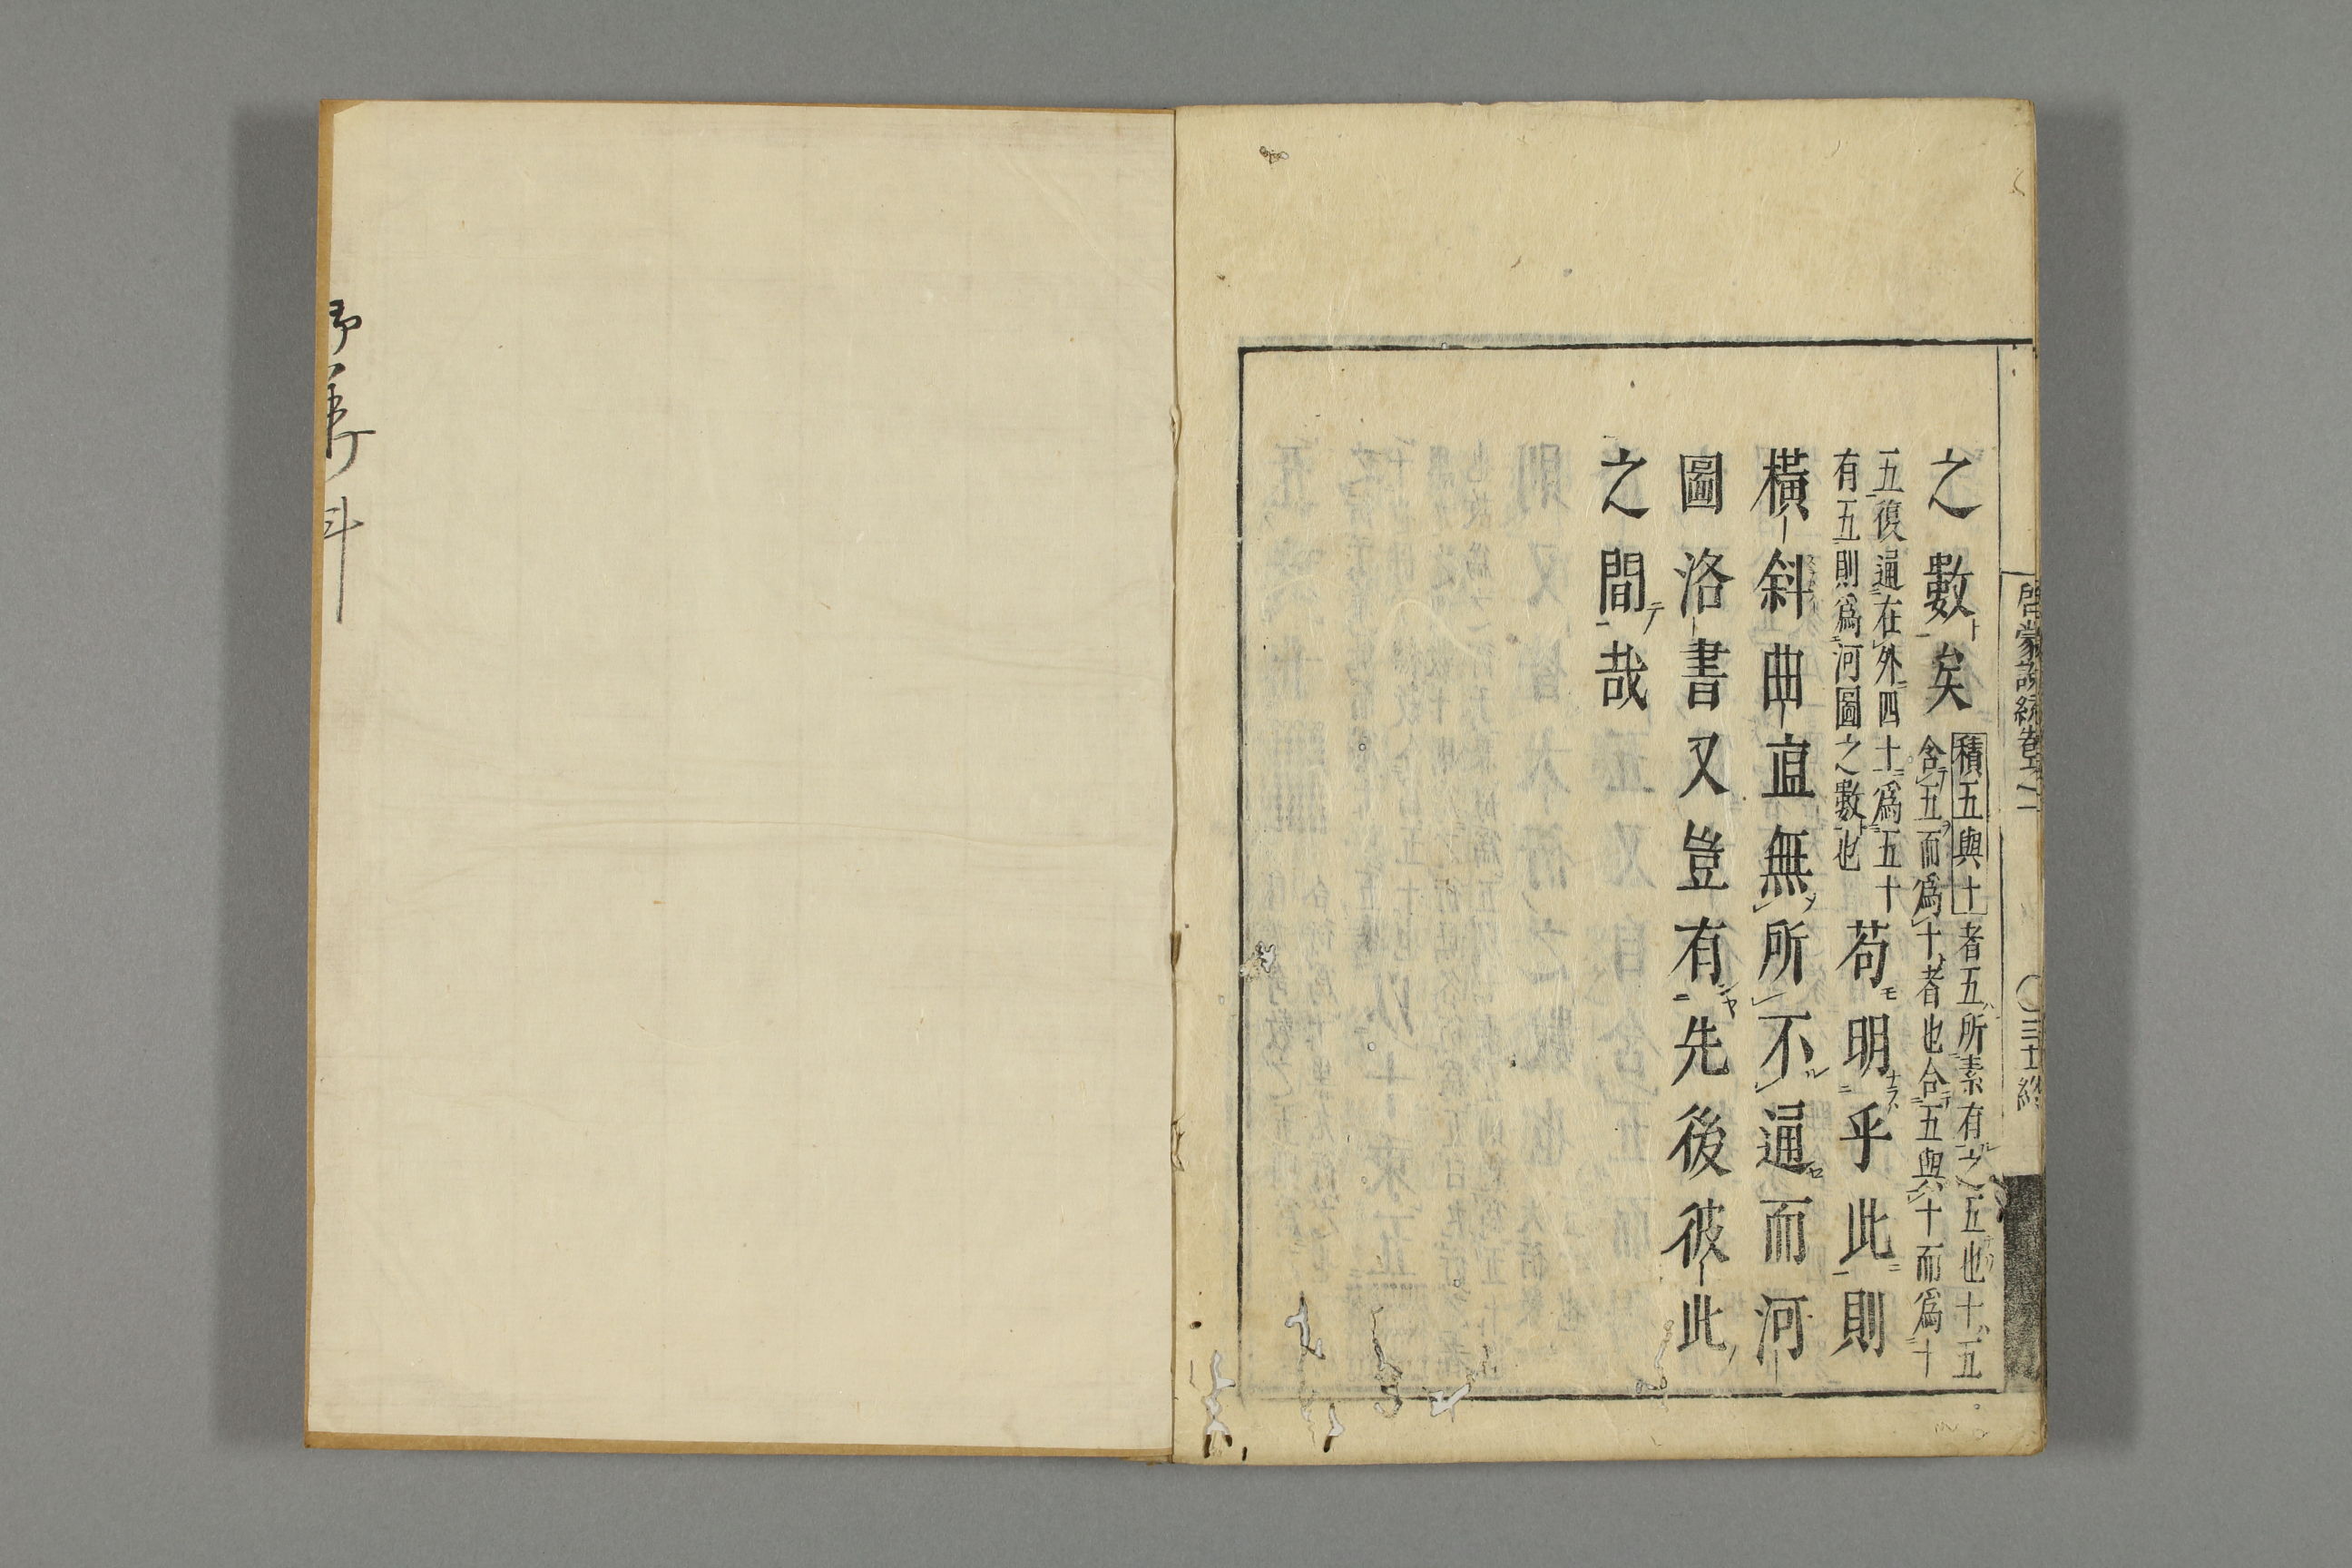 之數矣積五與十者五所素有之五也十五
含五而爲十者也合五與十而爲十
五復通在外四十爲五十
有五則爲河圖之數也
苟明乎此則
橫斜曲直無所不通而河
圖洛書又豈有先後彼此
之間哉
啓蒙 三十終